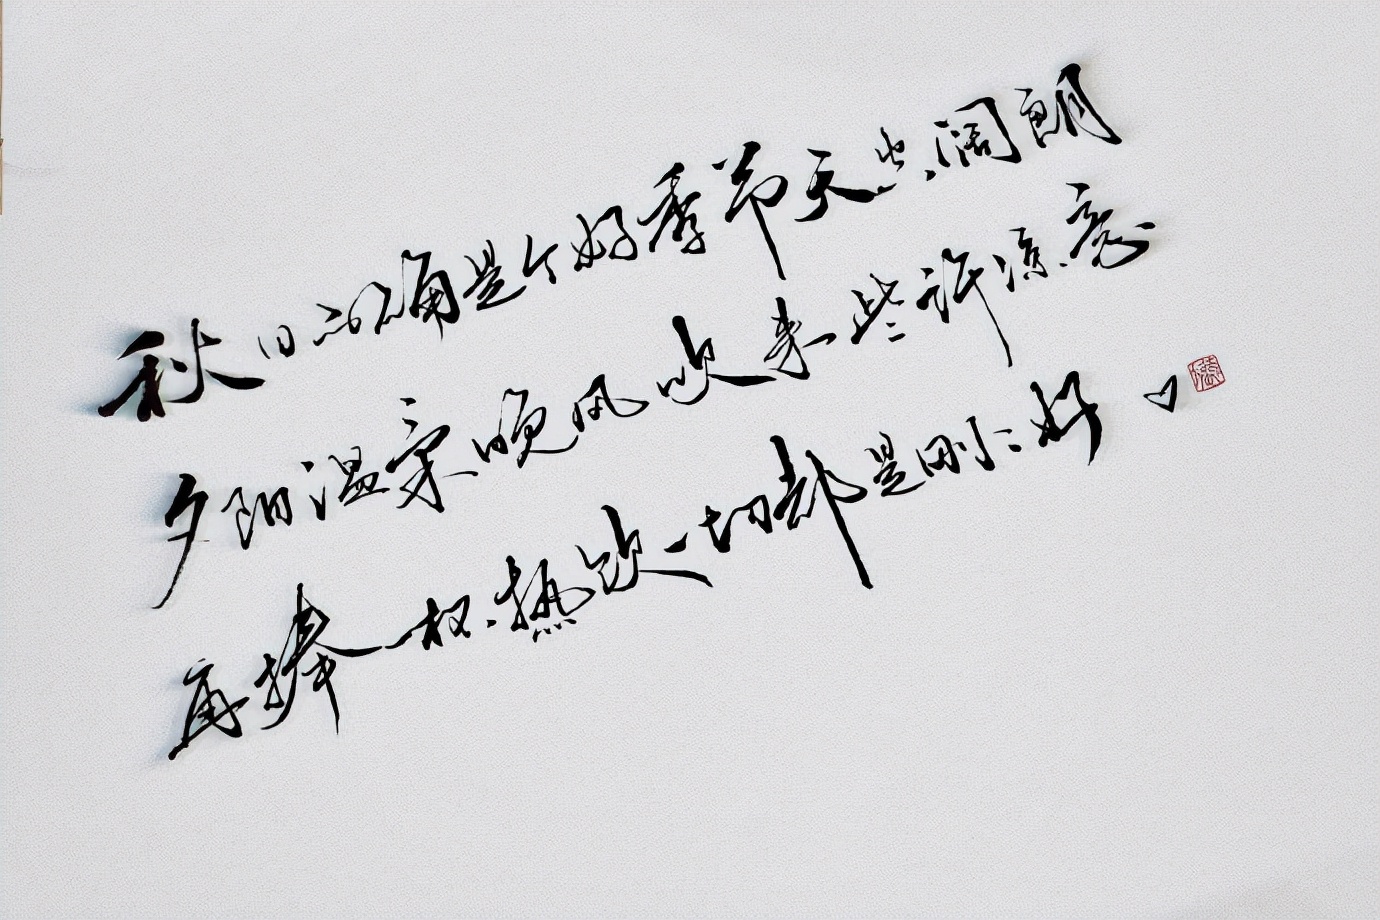 秋日的确是个好季节天空阔朗
夕阳温柔晚风吹来些许凉意
再捧一杯热饮一切都是刚刚好